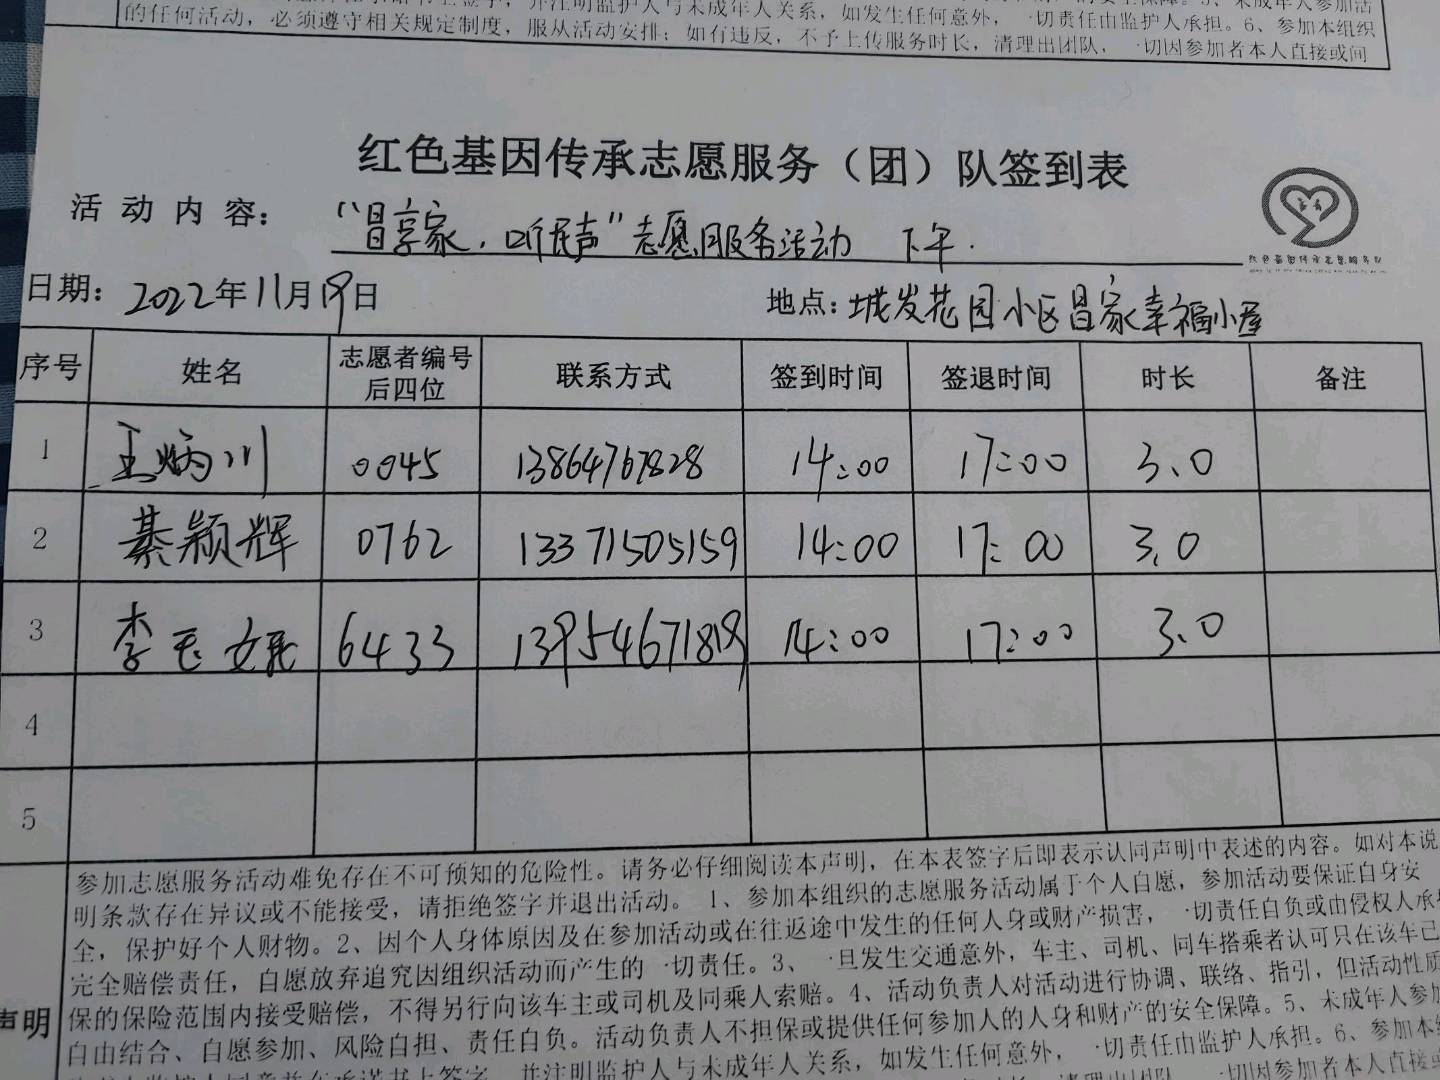 的任何活动，必须遵守相关规定制度，服从活动安排；如有违反，不予上传服务时长，清理出团队，一切因参加者本人直接或间
红色基因传承志愿服务（团）队签到表
活动内容： “昌享家，听民声”志愿服务活动 下午.
日期：2022年11月19日 地点：城发花园小区昌家幸福小屋
序号 姓名 志愿者编号后四位 联系方式 签到时间 签退时间 时长 备注
1 王炳川 0045 13864767828 14:00 17:00 3.0
2 綦颖辉 0762 13371505159 14:00 17:00 3.0
3 李 6433 13954671819 14:00 17:00 3.0
4
5
参加志愿服务活动难免存在不可预知的危险性。请务必仔细阅读本声明，在本表签字后即表示认同声明中表述的内容。如对本说
明条款存在异议或不能接受，请拒绝签字并退出活动。1、参加本组织的志愿服务活动属于个人自愿，参加活动要保证自身安
全，保护好个人财物。2、因个人身体原因及在参加活动或在往返途中发生的任何人身或财产损害，一切责任自负或由侵权人承担
完全赔偿责任，自愿放弃追究因组织活动而产生的一切责任。3、一旦发生交通意外，车主、司机、同车搭乘者认可只在该车已
声明 保的保险范围内接受赔偿，不得另行向该车主或司机及同乘人索赔。4、活动负责人对活动进行协调、联络、指引，但活动性质
自由结合、自愿参加、风险自担、责任自负。活动负责人不担保或提供任何参加人的人身和财产的安全保障。5、未成年人参加
并注明监护人与未成年人关系，如发生任何意外，一切责任由监护人承担。6、参加本组
一切因参加者本人直接或